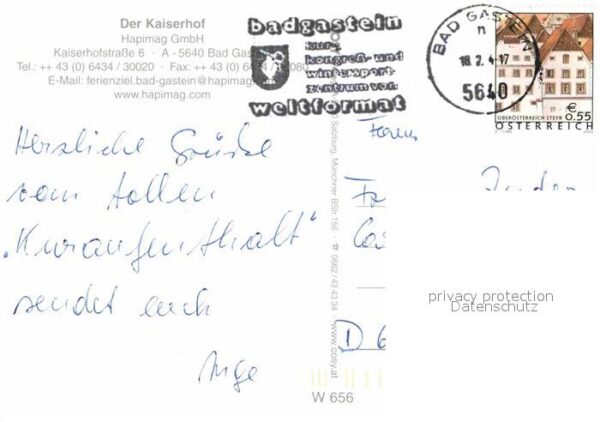 Der Kaiserhof
Hapimag GmbH
Kaiserhofstraße 6 · A - 5640 Bad Gas
Tel.: ++ 43 (0) 6434 / 30020 · Fax: ++ 43 (0) 64 080
E-Mail: ferienziel.bad-gastein@hapimag
www.hapimag.com
badgastein
kur-
kongreß- und
wintersport-
zentrum von
weltformat
BAD GASTEIN
n
18.2.4-17
5640
€ 0.55
OBERÖSTERREICH STEYR
ÖSTERREICH
Herzliche Grüße
vom tollen
„Kuraufenthalt"
sendet euch
Inge
Salzburg, Münchner BStr 156 · ☎ 0662 / 43 43 34 · www.cosy.at
Fam
D 6
privacy protection
Datenschutz
W 656